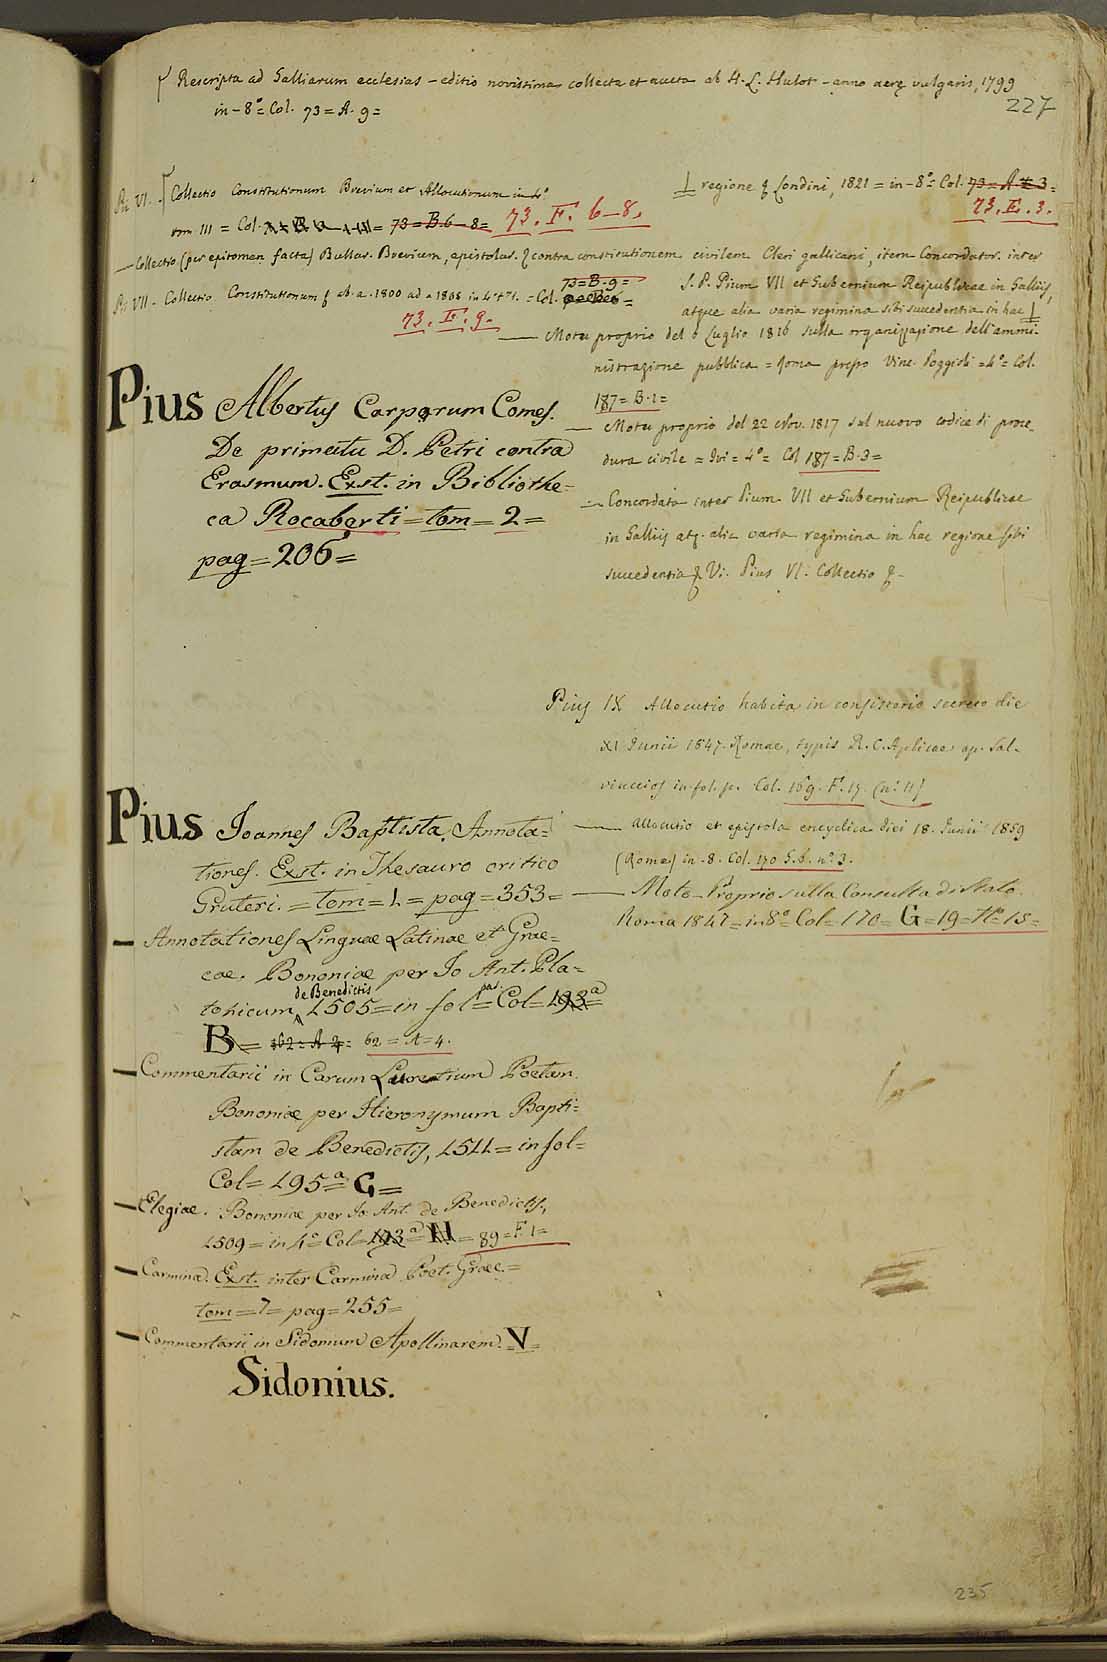 Rescripta ad Galliarum ecclesias - editio novissima collecta et aucta ab H. L. Hulot - anno aerę vulgaris, 1799
227
in-8° = Col. 73 = A. 9 =
Pii VI. Collectio Constitutionum Brevium et Allocutionum in 4°
tom III = Col. 73 = B. 6-8 = 73. F. 6-8.
regione & Londini, 1821 = in-8° = Col. 73 = A = 3 =
73. E. 3.
— Collectio (per epitomen facta) Bullar. Brevium, epistolar. & contra constitutionem civilem Cleri gallicani, item Concordator. inter
S. P. Pium VII et Gubernium Reipublicae in Galliis,
atque alia varia regimina sibi succedentia in hac
Pii VII. Collectio Constitutionum & ab a. 1800 ad a 1808 in 4° t. 1. = Col. 73 = B. 9 =
73. F. 9.
— Motu proprio del 6 Luglio 1816 sulla organizzazione dell'ammi-
nistrazione pubblica = Roma presso Vinc. Poggioli = 4° = Col.
187 = B. 1 =
— Motu proprio del 22 Nov. 1817 sul nuovo codice di proce-
dura civile = Ivi = 4° = Col 187 = B. 3 =
— Concordata inter Pium VII et Gubernium Reipublicae
in Galliis atq. alia varia regimina in hac regione sibi
succedentia & Vi. Pius VI. Collectio &.
Pius Albertus Carporum Comes.
De primatu D. Petri contra
Erasmum. Exst. in Bibliothe=
ca Rocaberti = tom = 2 =
pag = 206 =
Pius IX Allocutio habita in consistorio secreto die
XI Junii 1847. Romae, typis R. C. Aplicae ap. Sal-
viuccios in fol. p. Col. 169. F. 17. (n.° 11)
— allocutio et epistola encyclica diei 18. Junii 1859
(Romae) in. 8. Col. 170 G. 6. n.° 3.
— Moto-Proprio sulla Consulta di Stato.
Roma 1847 = in 8° Col = 170 = G = 19 = N° 15 =
Pius Joannes Baptista. Annota=
tiones. Exst. in Thesauro critico
Gruteri. = tom = 1. = pag = 353 =
— Annotationes Linguae Latinae et Grae=
cae. Bononiae per Jo Ant. Pla=
tonicum de Benedictis 1505 = in fol = par. Col = 193 a =
B = 162 = A 2 = 62 = A = 4.
— Commentarii in Carum Lucretium Poetam.
Bononiae per Hieronymum Bapti=
stam de Benedictis, 1511 = in fol =
Col = 195 a = G =
— Elegiae. Bononiae per Jo. Ant. de Benedictis,
1509 = in 4° = Col = 193 a = N = 89 = F. 1 =
— Carmina. Exst. inter Carmina Poet. Graec. =
tom = 7 = pag = 255 =
— Commentarii in Sidonium Apollinarem. V.
Sidonius.
235